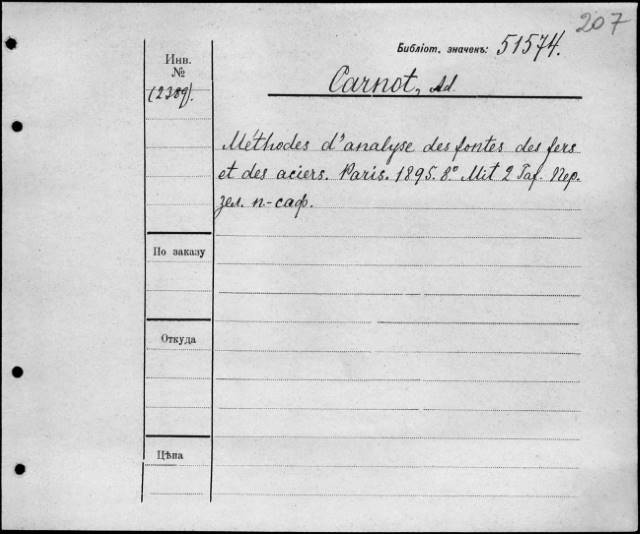 207
Библіот. значекъ: 51574.
Инв.
№
(2389).
Carnot, Ad.
Méthodes d'analyse des fontes des fers
et des aciers. Paris. 1895. 8º Mit 2 Taf. Пер.
зел. п.-саф.
По заказу
Откуда
Цѣна